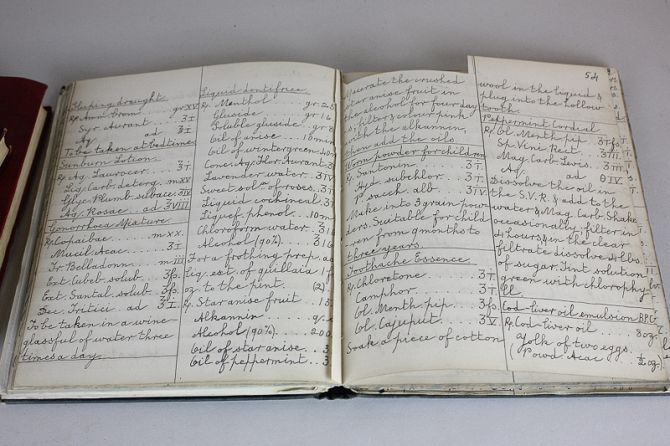 Sleeping draught
Rx Amm. brom. gr xv
Syr. Aurant. ʒ i
Aq. ad ℥ i
To be taken at bedtime
Sunburn Lotion.
Rx Aq. Laurocer. ʒ i
Liq. Carb. deterg. m xx
Glyc. Plumb. subace. ʒ iv
Aq. Rosae ad ℥ viii
Gonorrhoea Mixture
Rx Copaibae m xx.
Mucil. Acac. ʒ i
Tr. Belladonna m iii
Ext. Cubeb. solub. ʒ fs.
Ext. Santal. solub. ʒ fs.
Dec. Tritici ad ℥ i
To be taken in a wine-
glassful of water three
times a day.
Liquid dentifrice
Rx Menthol gr. 25
Gluside gr 16
Soluble gluside gr 8
Oil of anise 10 min
Oil of wintergreen
Conc. Aq. Flor. Aurant. ʒ
Lavender water. ʒ iv
Sweet soln of roses. ʒ i
Liquid cochineal ʒ i
Liquef. phenol. 10 m
Chloroform water. ℥ 16
Alcohol (90%) ℥ 16
For a frothing prep. ad
Liq. ext. of quillaia 1f
oz to the pint. (2)
Rx Star anise fruit
Alkannin
Alcohol (90%) 200
Oil of star anise
Oil of peppermint
the crushed
star anise fruit in
the alcohol for four days
filter & colour pink
with the alkannin,
then add the oils
Worm powder for children
Rx Santonin ʒ i
Hyd. subchlor. ʒ i
P. sacch. alb. ʒ iv
Make into 3 grain pow-
ders. Suitable for child
ren from 9 months to
three years.
Toothache Essence.
Rx Chloretone ʒ i
Camphor ʒ i
Ol. Menth. pip. ʒ fs.
Ol. Cajuput. ʒ v
Soak a piece of cotton
54
wool in the liquid &
plug into the hollow
tooth.
Peppermint Cordial
Rx Ol. Menth. pip
Sp. Vini Rect.
Mag. Carb. Levis. ℥ iii
Aq. ad O iv
Dissolve the oil in
the S.V.R. & add to the
water & Mag. Carb. Shake
occasionally, filter in
hours & in the clear
filtrate dissolve 2lbs
of sugar. Tint solution
green with chlorophy-
ll.
Cod-liver oil emulsion BPC
Rx Cod-liver oil 8 oz
Yolk of two eggs.
(Powd. Acac ½ oz.)